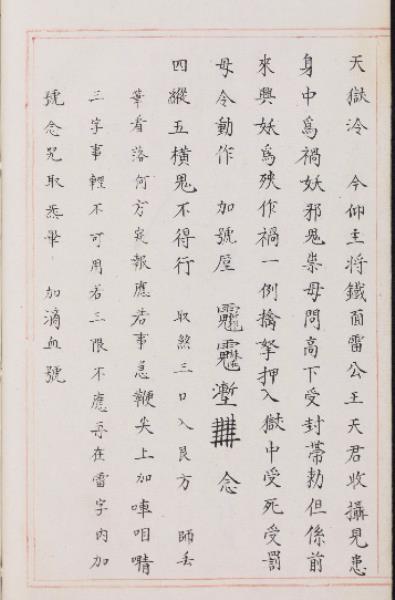 天獄泠 今仰主将鐵面雷公王天君收攝見患
身中爲禍妖邪鬼祟毋問高下受封帶勅但係前
來興妖爲殃作禍一例擒拏押入獄中受死受罰
毋令動作 加號屋 念
四縱五橫鬼不得行 取煞三口入艮方 師丢
筆看落何方定報應若事急鞭尖上加啤呬啨
三字事輕不可用若三限不應再在雷字内加
號念咒取炁畢 加滴血號